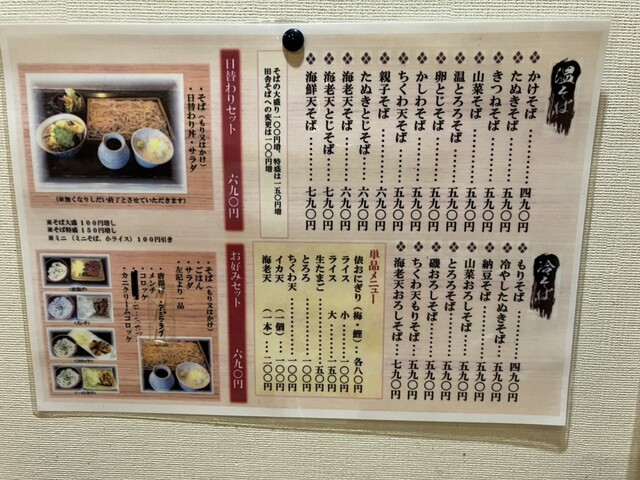 温そば
かけそば………四九〇円
たぬきそば………五九〇円
きつねそば………五九〇円
山菜そば………五九〇円
温とろろそば………五九〇円
卵とじそば………五九〇円
かしわそば………五九〇円
ちくわ天そば………五九〇円
親子そば………六九〇円
たぬきとじそば………六九〇円
海老天そば………六九〇円
海老天とじそば………七九〇円
海鮮天そば………七九〇円
そばの大盛り一〇〇円増、特盛は一五〇円増
田舎そばへの変更は一〇〇円増
日替わりセット 六九〇円
・そば（もり又はかけ）
・日替わり丼・サラダ
（※無くなりしだい終了とさせていただきます）
※そば大盛 100円増し
※そば特盛 150円増し
※ミニ（ミニそば、小ライス）100円引き
冷そば
もりそば………四九〇円
冷やしたぬきそば………五九〇円
納豆そば………五九〇円
山菜おろしそば………五九〇円
とろろそば………五九〇円
磯おろしそば………五九〇円
ちくわ天もりそば………五九〇円
海老天おろしそば………七九〇円
単品メニュー
俵おにぎり（梅・鰹）各八〇円
ライス 小………一〇〇円
ライス 大………一五〇円
生たまご………五〇円
とろろ………一〇〇円
ちくわ天………一〇〇円
イカ天（一個）………一〇〇円
海老天（一本）………二〇〇円
お好みセット 六九〇円
・そば（もり又はかけ）
・ごはん
・サラダ
・左記より一品
・唐揚げ
・メンチ
・コロッケ
・カニクリームコロッケ